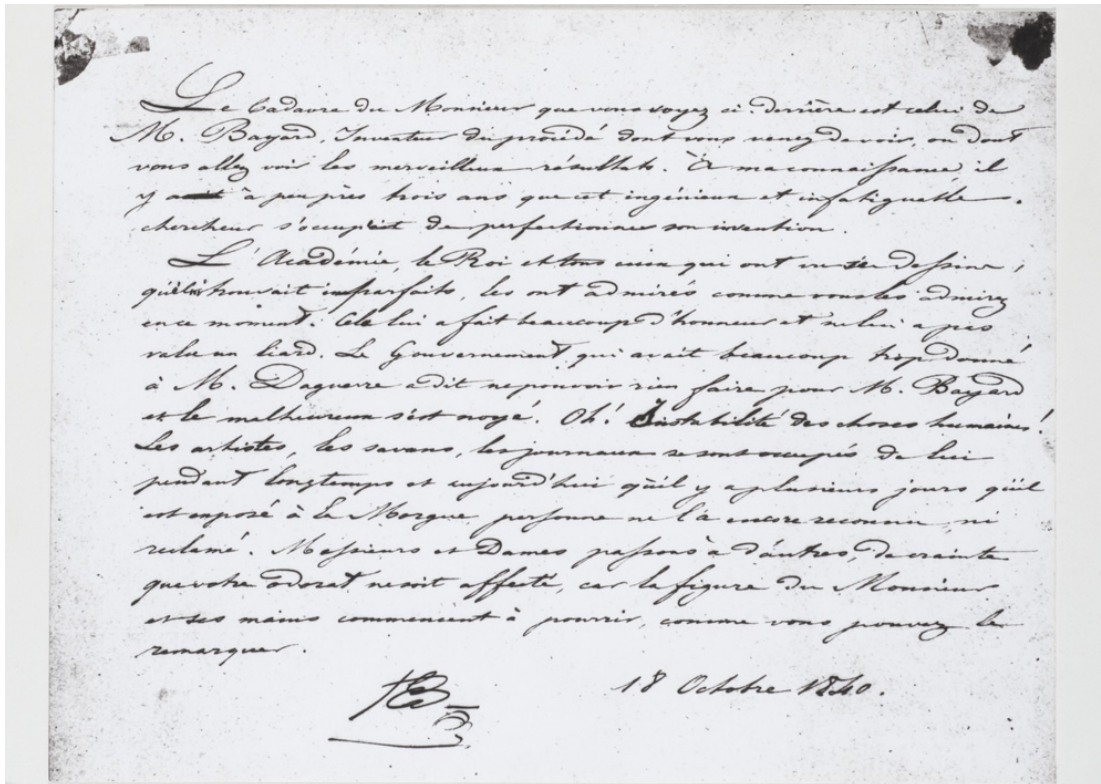 Le Cadavre du Monsieur que vous voyez ci-derrière est celui de
M. Bayard, Inventeur du procédé dont vous venez de voir, ou dont
vous allez voir les merveilleux résultats. À ma connaissance, il
y a à peu près trois ans que cet ingénieux et infatigable
chercheur s'occupait de perfectionner son invention.
L'Académie, le Roi et tous ceux qui ont vu ses dessins,
qu'il trouvait imparfaits, les ont admirés comme vous les admirez
en ce moment. Cela lui a fait beaucoup d'honneur et ne lui a pas
valu un liard. Le Gouvernement qui avait beaucoup trop donné
à M. Daguerre a dit ne pouvoir rien faire pour M. Bayard
et le malheureux s'est noyé. Oh! Instabilité des choses humaines!
Les artistes, les savans, les journaux se sont occupés de lui
pendant longtemps et aujourd'hui qu'il y a plusieurs jours qu'il
est exposé à la Morgue personne ne l'a encore reconnu, ni
réclamé. Messieurs et Dames passons à d'autres, de crainte
que votre odorat ne soit affecté, car la figure du Monsieur
et ses mains commencent à pourrir, comme vous pouvez le
remarquer.
HB
18 Octobre 1840.